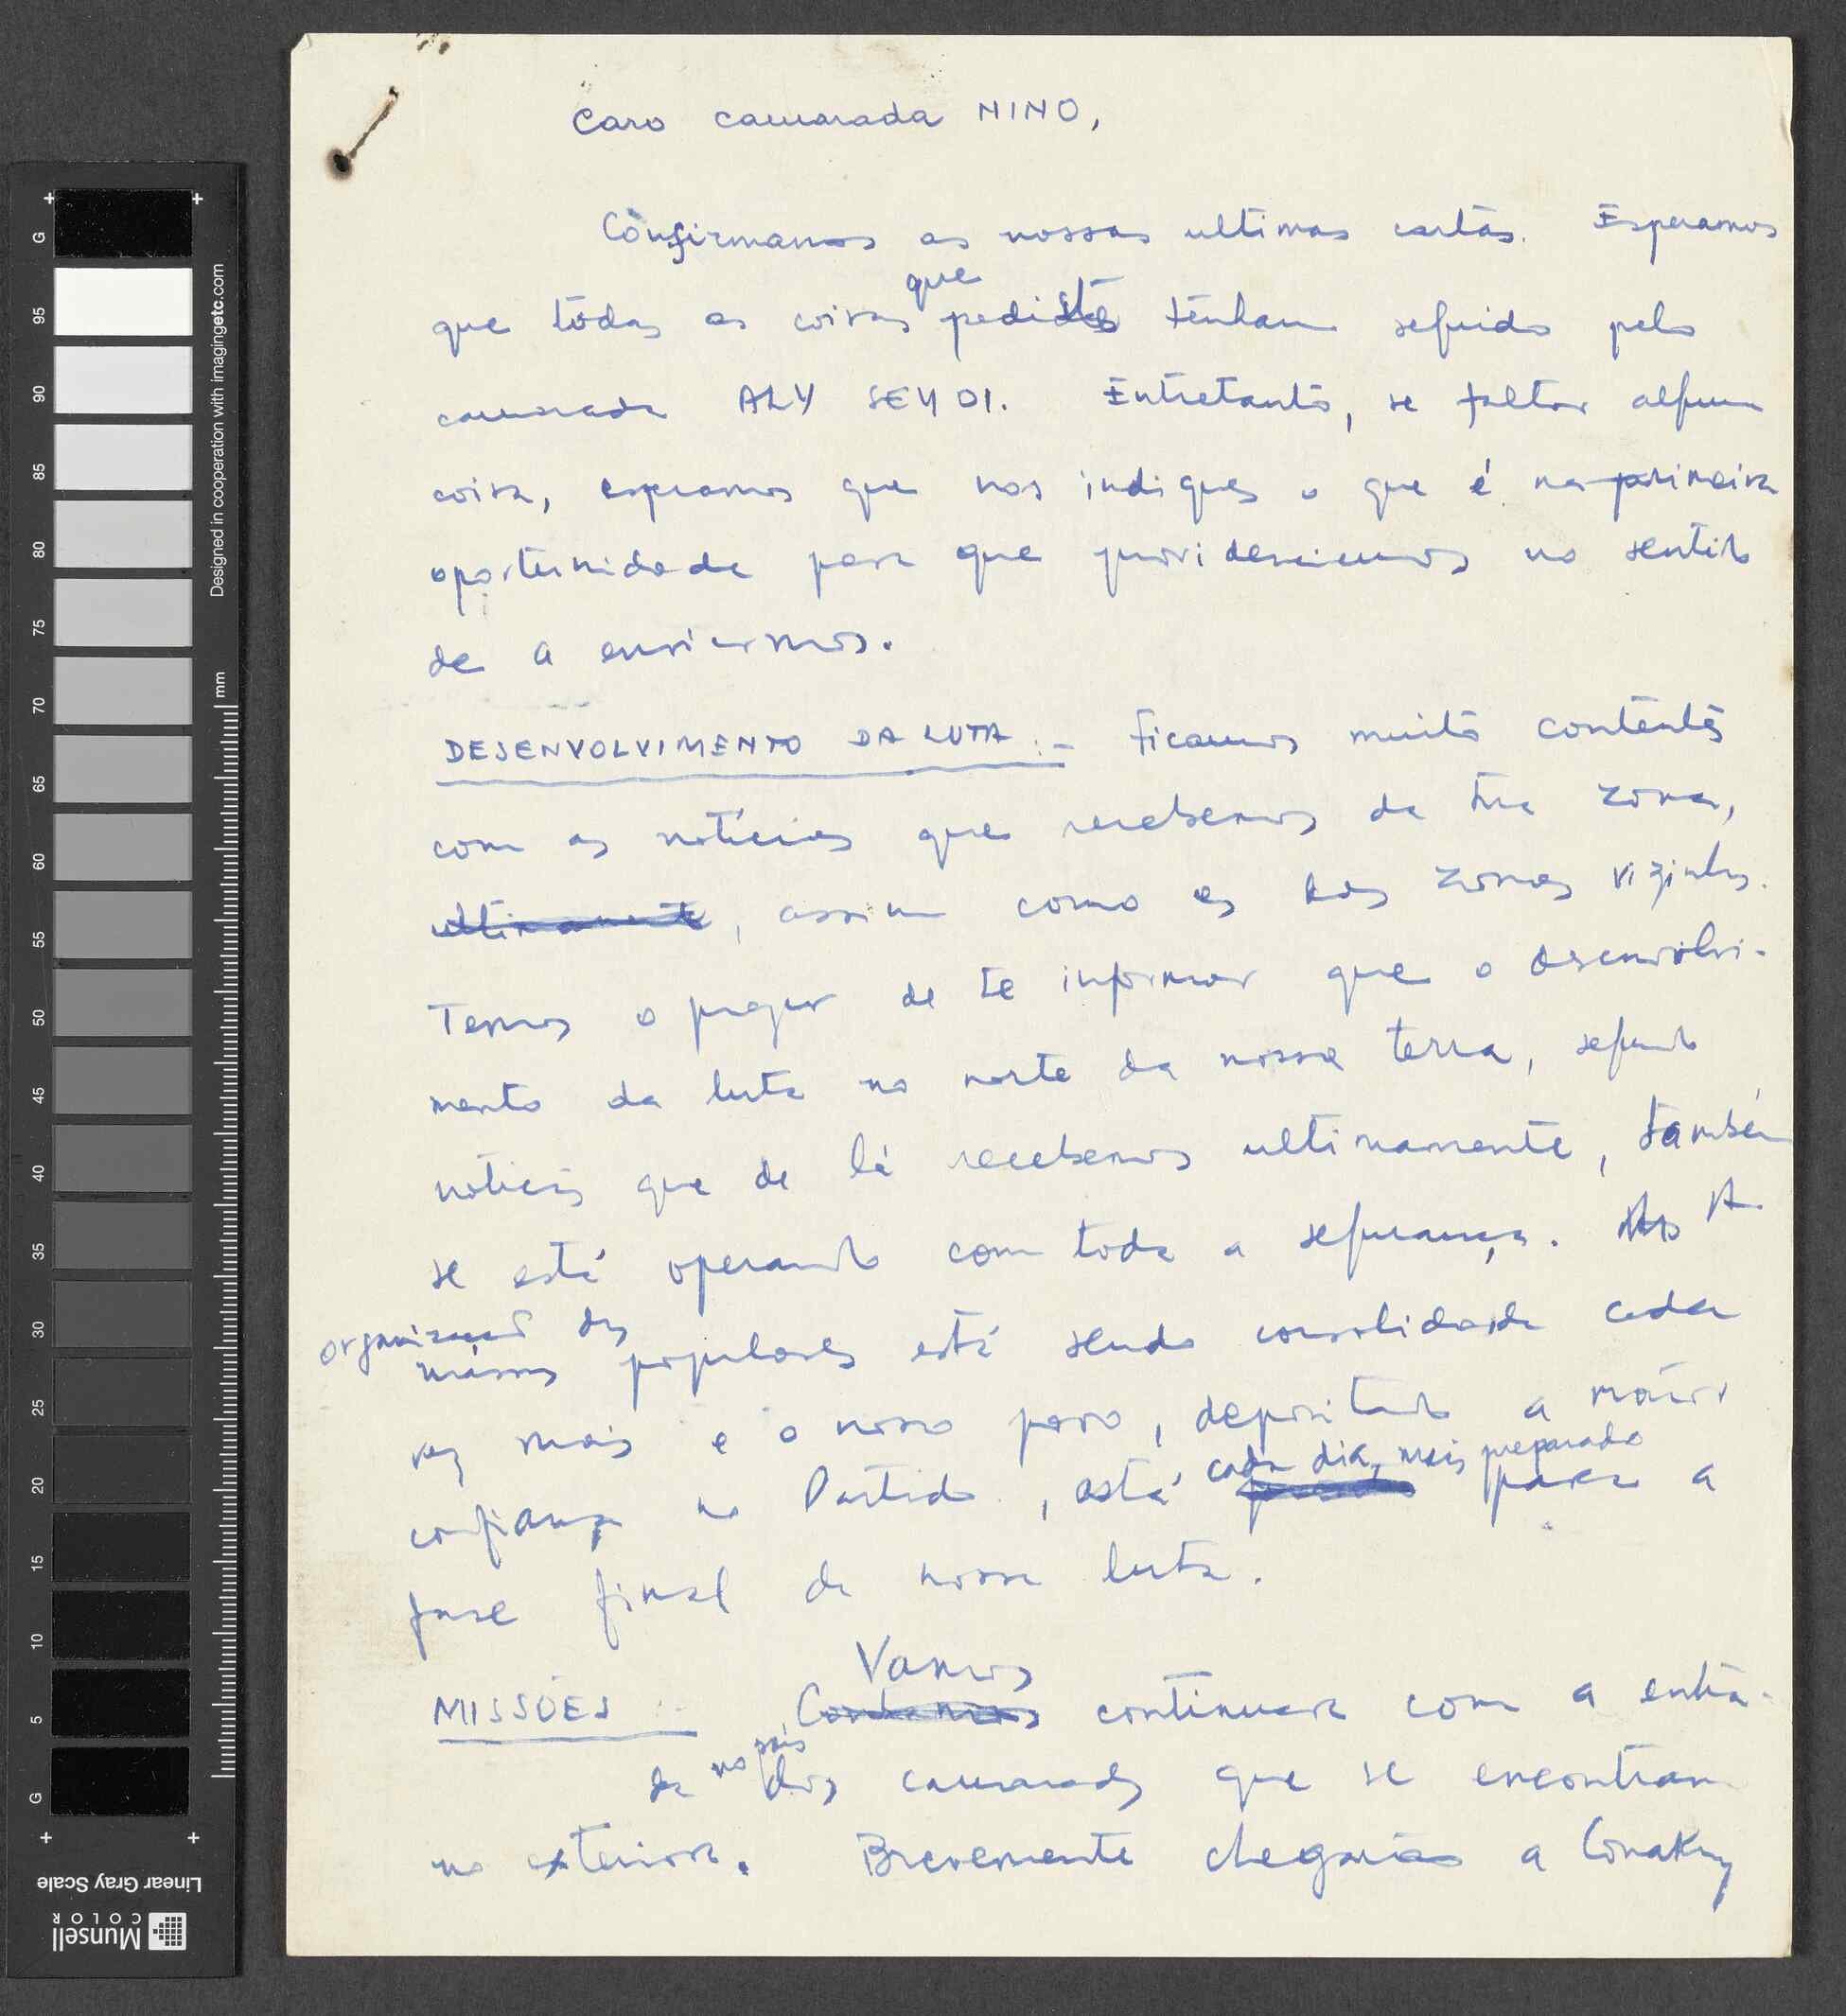 Caro camarada NINO,
Confirmamos as nossas ultimas cartas. Esperamos
que todas as coisas que pediste tenham seguido pelo
camarada ALY SEYDI. Entretanto, se faltar alguma
coisa, esperamos que nos indiques o que é na primeira
oportunidade para que providenciemos no sentido
de a enviarmos.
DESENVOLVIMENTO DA LUTA :- Ficamos muito contentes
com as notícias que recebemos da tua zona,
ultimamente, assim como as das zonas vizinhas.
Temos o prazer de te informar que o desenvolvi-
mento da luta no norte da nossa terra, segundo
notícias que de lá recebemos ultimamente, também
se está operando com toda a segurança. A
organização das
massas populares está sendo consolidada cada
vez mais e o nosso povo, depositando a maior
confiança no Partido, está cada dia mais preparado para a
fase final da nossa luta.
MISSÕES :- Vamos continuar com a entra-
da no país dos camaradas que se encontram
no exterior. Brevemente chegarão a Conakry
G 95 90 85 80 75 70 65 60 55 50 45 40 35 30 25 20 15 10 5 G
mm
Designed in cooperation with imagingetc.com
Linear Gray Scale
Munsell
COLOR